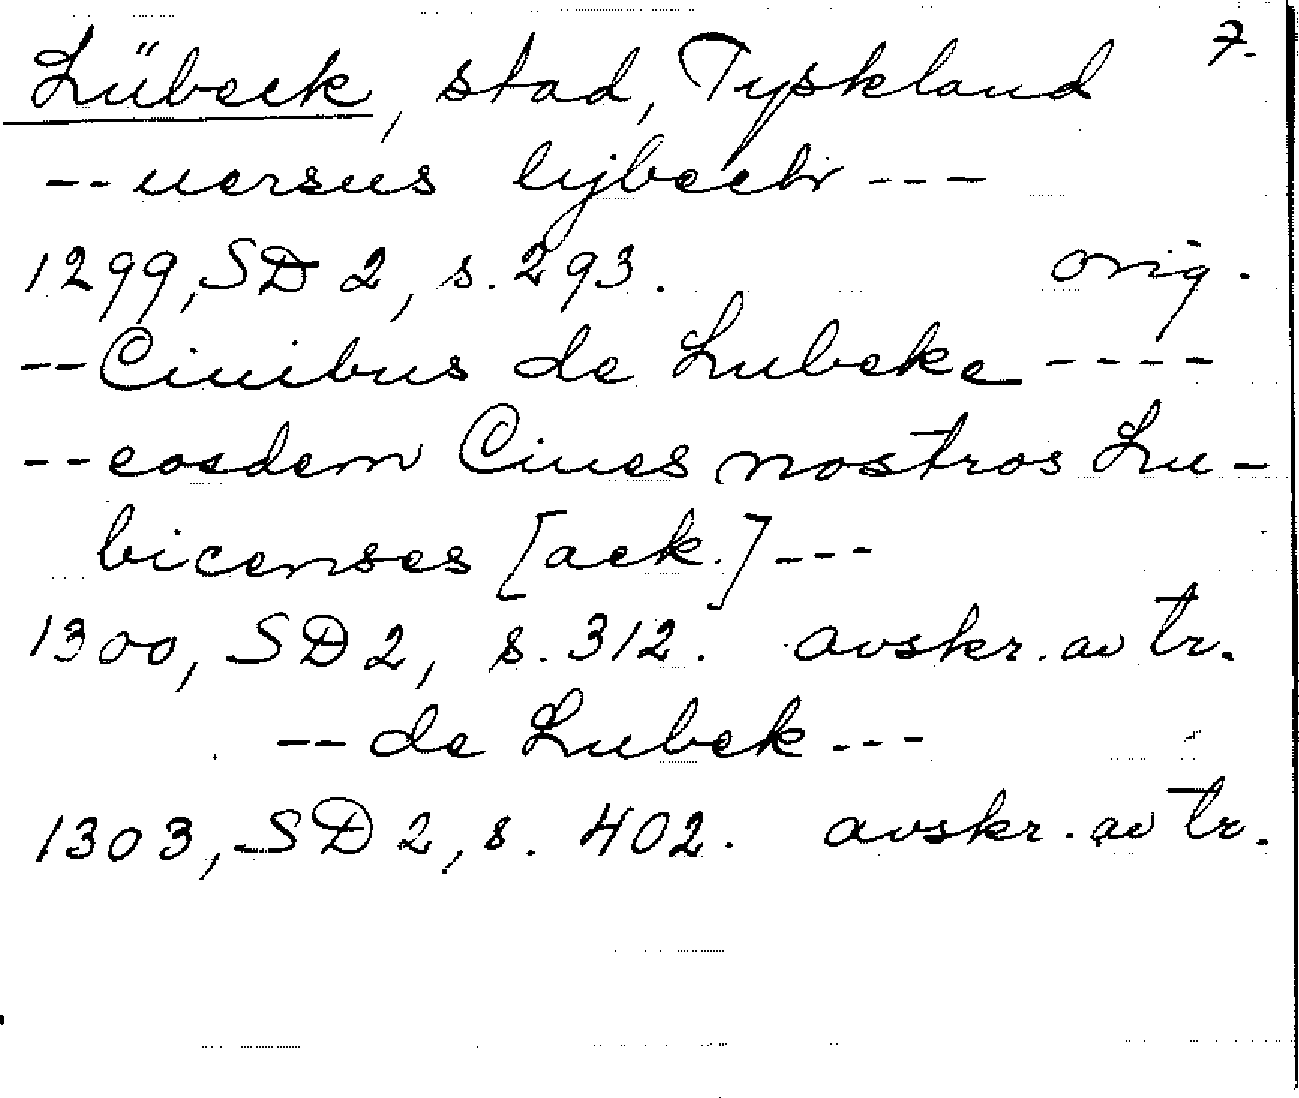 Lübeck, stad, Tyskland 7.
-- uersus lybeck ---
1299, SD 2, s. 293. orig.
-- Ciuibus de Lubeke ----
-- eosdem Ciues nostros Lu-
bicenses [ack.] ---
1300, SD 2, s. 312. avskr. av tr.
-- de Lubek ---
1303, SD 2, s. 402. avskr. av tr.